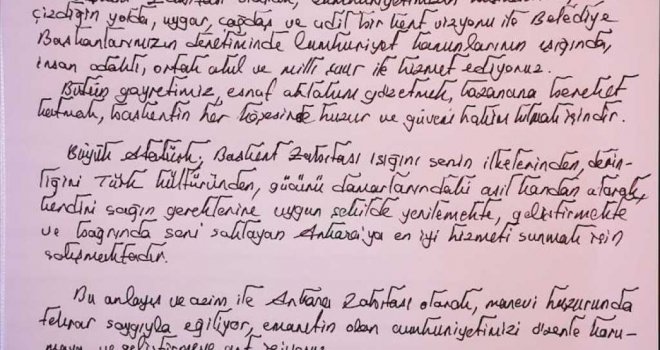 çizdiğin yolda, uygar, çağdaş ve adil bir kent vizyonu ile Belediye
Başkanlarımızın denetiminde Cumhuriyet kanunlarının ışığında,
insan odaklı, ortak akıl ve milli şuur ile hizmet ediyoruz.
Bütün gayretimiz, esnaf ahlakını gözetmek, kazanana bereket
katmak, başkentin her köşesinde huzur ve güveni hakim kılmak içindir.
Büyük Atatürk, Başkent Zabıtası ışığını senin ilkelerinden, derin-
liğini Türk kültüründen, gücünü damarlarındaki asil kandan alarak,
kendini çağın gereklerine uygun şekilde yenilemekte, geliştirmekte
ve bağrında seni saklayan Ankara'ya en iyi hizmeti sunmak için
çalışmaktadır.
Bu anlayış ve azim ile Ankara Zabıtası olarak, manevi huzurunda
tekrar saygıyla eğiliyor, emanetin olan cumhuriyetimizi özenle koru-